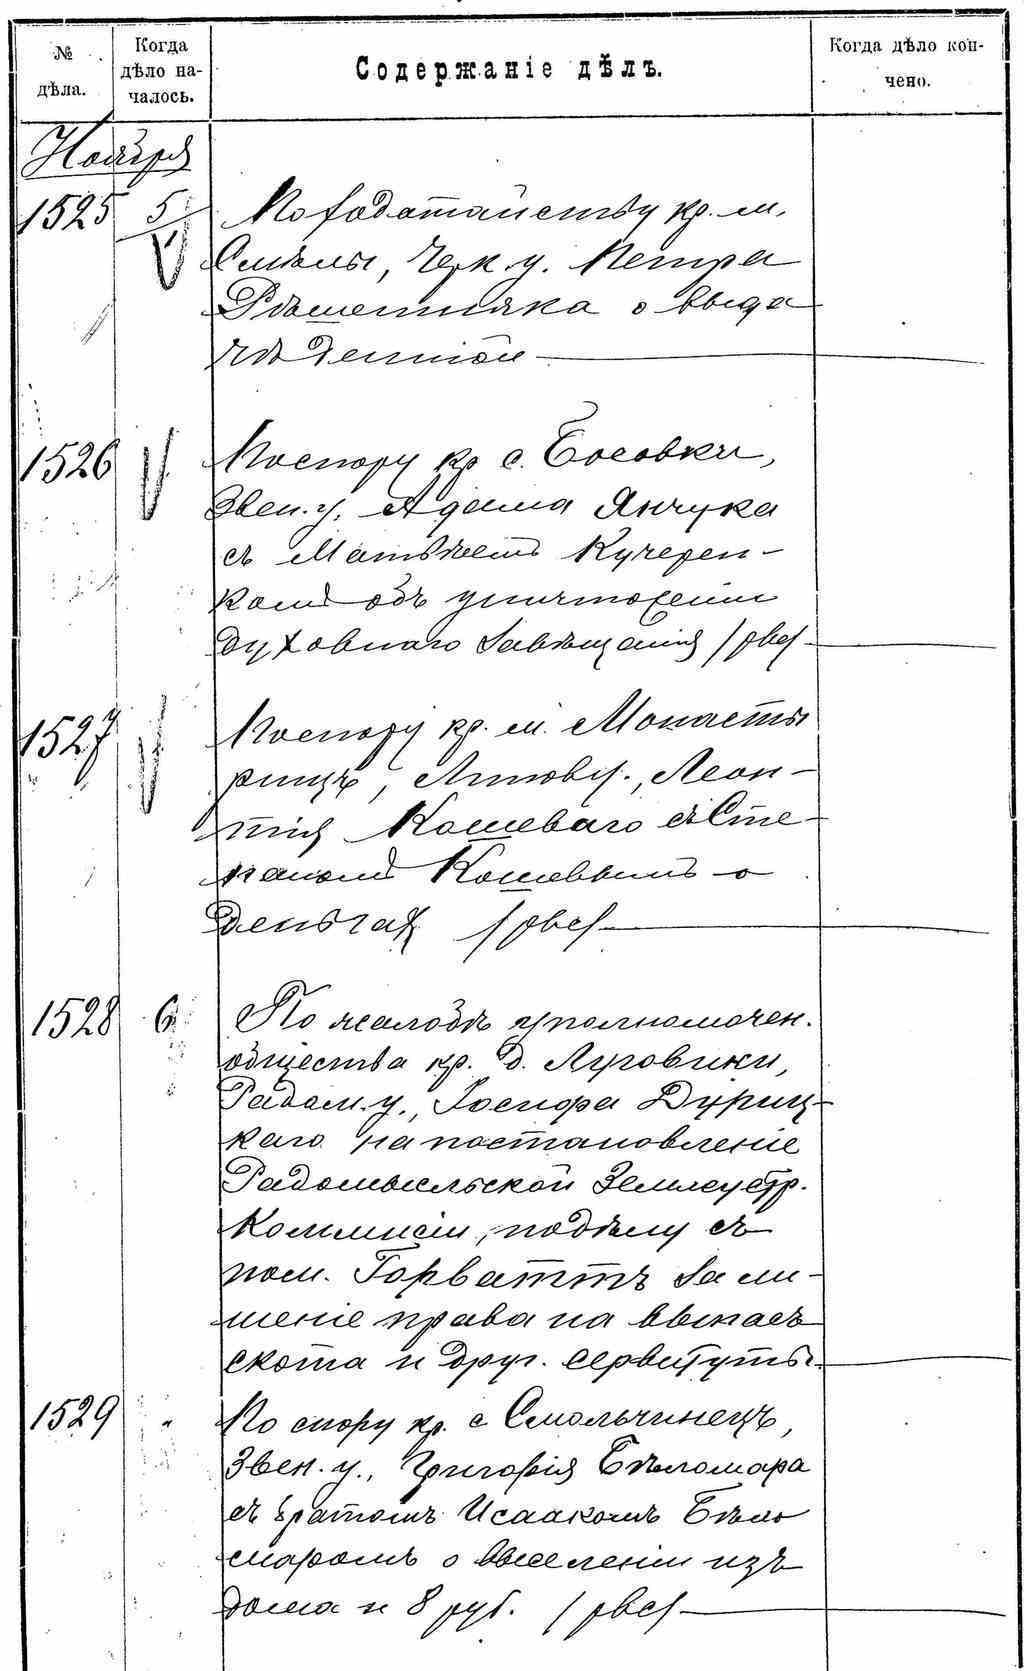 № дѣла.
Когда дѣло началось.
Содержаніе дѣлъ.
Когда дѣло кончено.
Ноября
1525 5 По ходатайству кр. м.
Смѣлы, Черк. у. Петра
Рѣшетняка о выда
чѣ денегъ
1526 По спору кр с. Босовки,
Звен. у. Адама Янчука
съ Матвѣемъ Кучерен-
комъ объ уничтоженіи
духовнаго завѣщанія /рвс/
1527 По спору кр. м. Монасты
рищъ, Липов у., Леон-
тія Кошеваго съ Сте-
паномъ Кошевымъ о
деньгах /рвс/
1528 6 По жалобѣ уполномочен.
общества кр. д. Луговики,
Радом. у., Іосифа Дѣриц-
каго на постановленіе
Радомысльской Землеустр.
Коммисіи, по дѣлу съ
пом. Горваттъ за ли-
шеніе права на выпасъ
скота и друг. сервитуты.
1529 " По спору кр. с Смольчинецъ,
Звен. у., Григорія Бѣломара
съ братомъ Исаакомъ Бѣло
маромъ о выселеніи изъ
дома и 8 руб. /рвс/